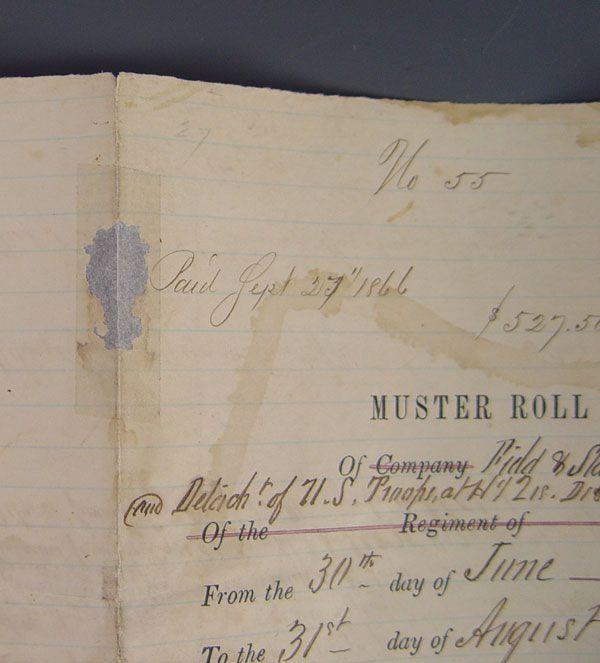 27
No 55
Paid Sept 27" 1866
$527.50
MUSTER ROLL
Of Company Field & Sta
and Detach't. of U.S. Troops, at
Of the Regiment of
From the 30th day of June
To the 31st day of August